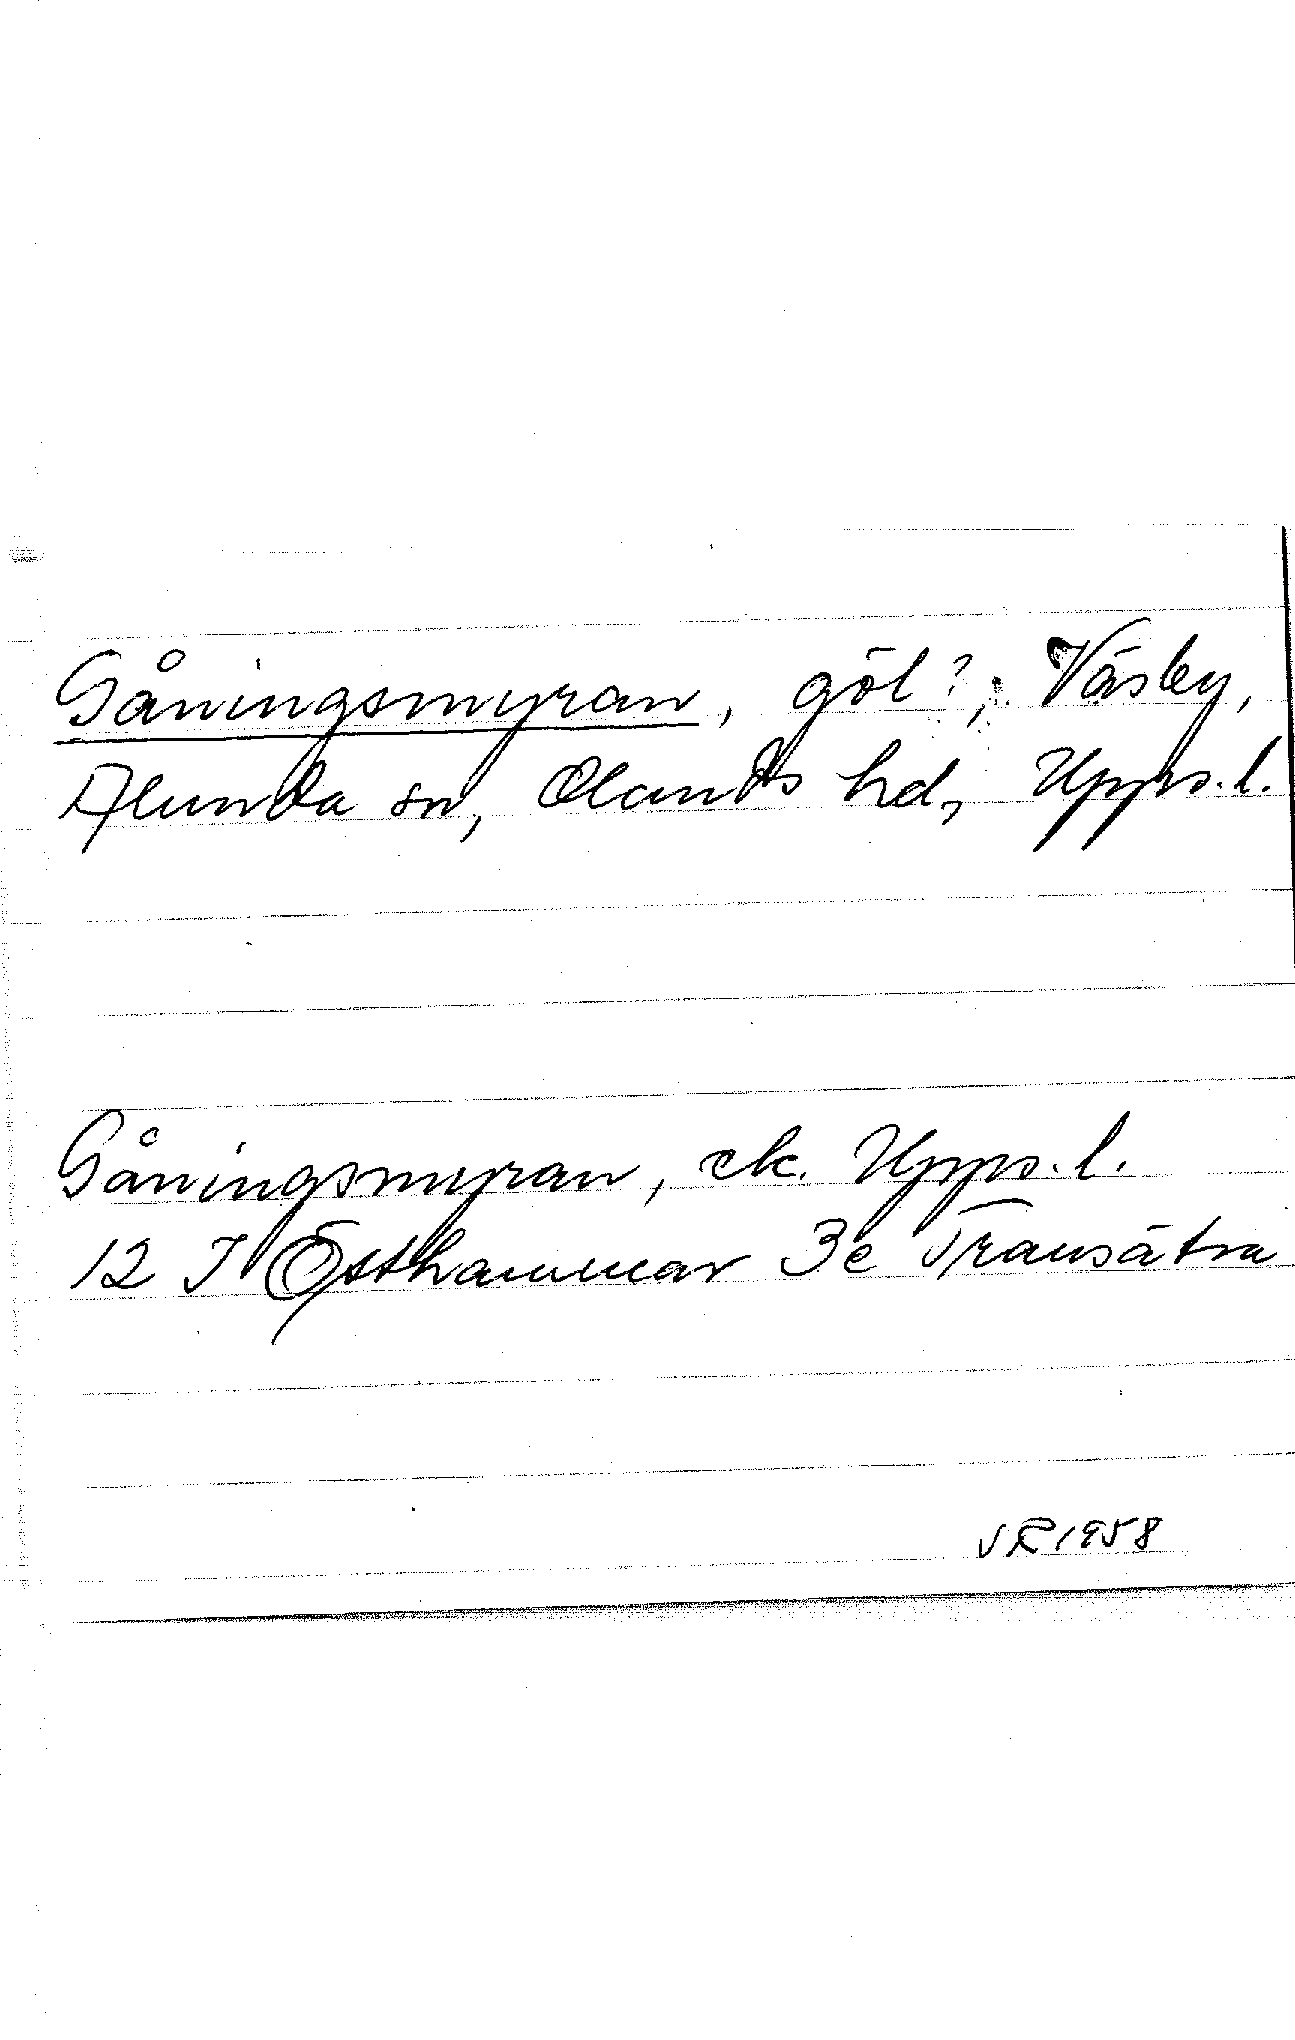 Gåningsmyran, göl?, Väsby,
Alunda sn, Olands hd, Upps. l.
Gåningsmyran, ek. Upps. l.
12 I Östhammar 3e Transätra
VR 1958